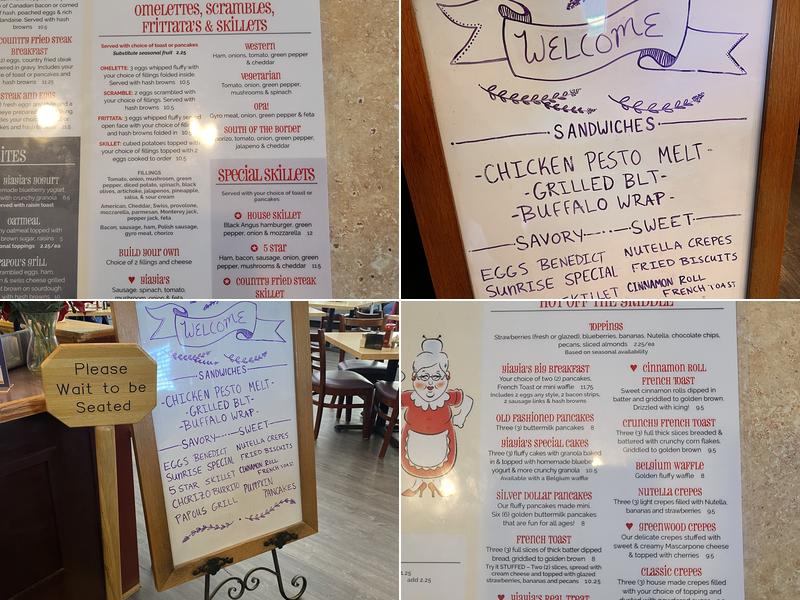 of Canadian bacon or corned
of hash, peached eggs & rich
andaise. Served with hash
browns 10.5
country fried steak
breakfast
eggs, country fried steak
ered in gravy. Includes your
e of toast or pancakes and
hash browns 11.25
steak and eggs
fresh eggs
prepared
ITES
yiayia's yogurt
made blueberry yogurt
with crunchy granola 6.5
ved with raisin toast
oatmeal
y oatmeal topped with
brown sugar, raisins 5
onal toppings 2.25/ea
papou's grill
crambled eggs, ham,
n & swiss cheese grilled
on sourdough
with hash browns
Omelettes, scrambles,
frittata's & skillets
Served with choice of toast or pancakes
Substitute seasonal fruit 2.25
OMELETTE: 3 eggs whipped fluffy with
your choice of fillings folded inside
Served with hash browns 10.5
SCRAMBLE: 2 eggs scrambled with
your choice of fillings. Served with
hash browns 10.5
FRITTATA: 3 eggs whipped fluffy served
open face with your choice of fillings
and hash browns folded in 10.5
SKILLET: cubed potatoes topped with
your choice of fillings topped with 2
eggs cooked to order 10.5
FILLINGS
Tomato, onion, mushroom, green
pepper, diced potato, spinach, black
olives, artichoke, jalapenos, pineapple,
salsa, & sour cream
American, Cheddar, Swiss, provolone,
mozzarella, parmesan, Monterey jack,
pepper jack, feta
Bacon, sausage, ham, Polish sausage,
gyro meat, chorizo
Build your own
Choice of 2 fillings and cheese
♥ yiayia's
Sausage, spinach, tomato,
mushroom, onion & feta
western
Ham, onions, tomato, green pepper
& cheddar
vegetarian
Tomato, onion, green pepper,
mushrooms & spinach
opa!
Gyro meat, onion, green pepper & feta
south of the border
Chorizo, tomato, onion, green pepper,
jalapeno & cheddar
special skillets
Served with your choice of toast or
pancakes
✪ house skillet
Black Angus hamburger, green
pepper, onion & mozzarella 12
✪ 5 star
Ham, bacon, sausage, onion, green
pepper, mushrooms & cheddar 11.5
✪ country fried steak
skillet
WELCOME
SANDWICHES
-CHICKEN PESTO MELT-
-GRILLED BLT-
-BUFFALO WRAP-
SAVORY SWEET
EGGS BENEDICT NUTELLA CREPES
SUNRISE SPECIAL FRIED BISCUITS
SKILLET CINNAMON ROLL
FRENCH TOAST
Please
Wait to be
Seated
WELCOME
SANDWICHES
-CHICKEN PESTO MELT-
-GRILLED BLT-
-BUFFALO WRAP-
SAVORY SWEET
EGGS BENEDICT NUTELLA CREPES
SUNRISE SPECIAL FRIED BISCUITS
5 STAR SKILLET CINNAMON ROLL
FRENCH TOAST
CHORIZO BURRITO PUMPKIN
PAPOUS GRILL PANCAKES
HOT OFF THE GRIDDLE
toppings
Strawberries (fresh or glazed), blueberries, bananas, Nutella, chocolate chips,
pecans, sliced almonds 2.25/ea
Based on seasonal availability
yiayia's big breakfast
Your choice of two (2) pancakes,
French Toast or mini waffle 11.75
Includes 2 eggs any style, 2 bacon strips,
2 sausage links & hash browns
old fashioned pancakes
Three (3) buttermilk pancakes 8
yiayia's special cakes
Three (3) fluffy cakes with granola baked
in & topped with homemade blueberry
yogurt & more crunchy granola 10.5
Available with a Belgium waffle
silver dollar pancakes
Our fluffy pancakes made mini.
Six (6) golden buttermilk pancakes
that are fun for all ages! 8
french toast
Three (3) full slices of thick batter dipped
bread, griddled to golden brown 8
Try it STUFFED - Two (2) slices, spread with
cream cheese and topped with glazed
strawberries, bananas and pecans 10.25
♥ yiayia's real treat
♥ cinnamon roll
french toast
Sweet cinnamon rolls dipped in
batter and griddled to golden brown.
Drizzled with icing! 9.5
crunchy french toast
Three (3) full thick slices breaded &
battered with crunchy corn flakes.
Griddled to golden brown 9.5
Belgium waffle
Golden fluffy waffle 8
nutella crepes
Three (3) light crepes filled with Nutella,
bananas and strawberries 9.5
♥ greenwood crepes
Our delicate crepes stuffed with
sweet & creamy Mascarpone cheese
& topped with cherries 9.5
classic crepes
Three (3) house made crepes filled
with your choice of topping and
add 2.25